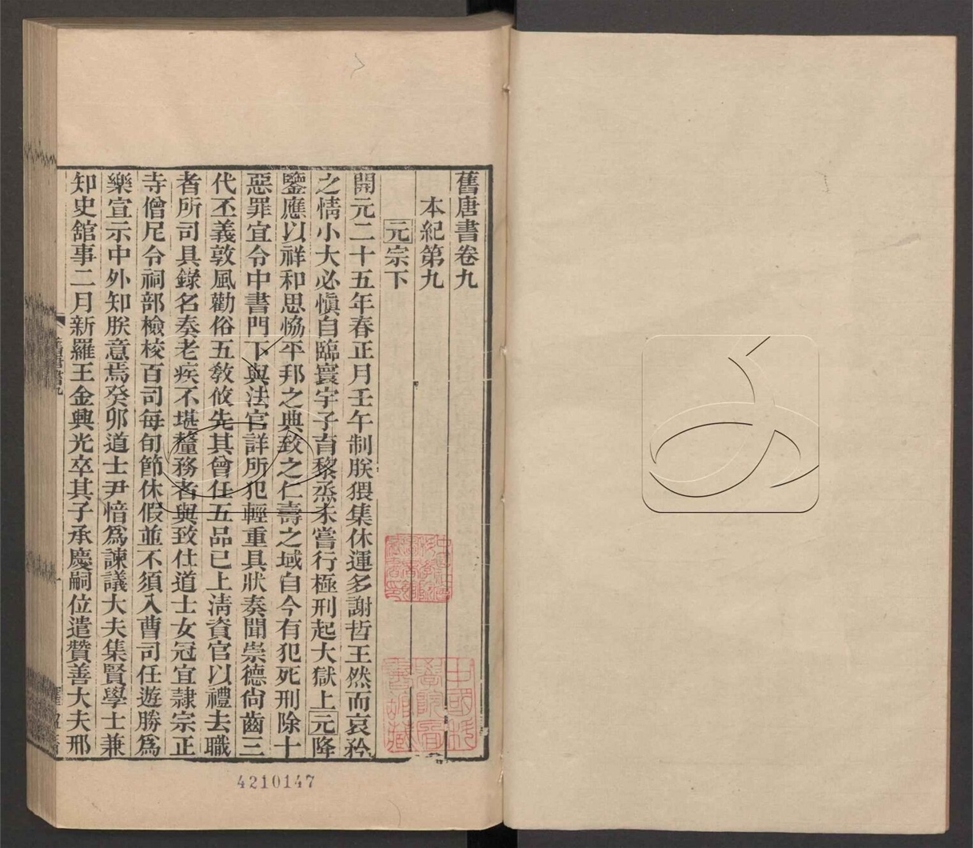 舊唐書卷九
本紀第九
元宗下
開元二十五年春正月壬午制朕猥集休運多謝哲王然而哀矜
之情小大必愼自臨寰宇子育黎烝未嘗行極刑起大獄上元降
鑒應以祥和思恊平邦之典致之仁壽之域自今有犯死刑除十
惡罪宜令中書門下與法官詳所犯輕重具狀奏聞崇德尙齒三
代丕義敦風勸俗五敎攸先其曾任五品已上淸資官以禮去職
者所司具錄名奏老疾不堪釐務者與致仕道士女冠宜隷宗正
寺僧尼令祠部檢校百司每旬節休假並不須入曹司任遊勝爲
樂宣示中外知朕意焉癸卯道士尹愔爲諫議大夫集賢學士兼
知史舘事二月新羅王金興光卒其子承慶嗣位遣贊善大夫邢
4210147